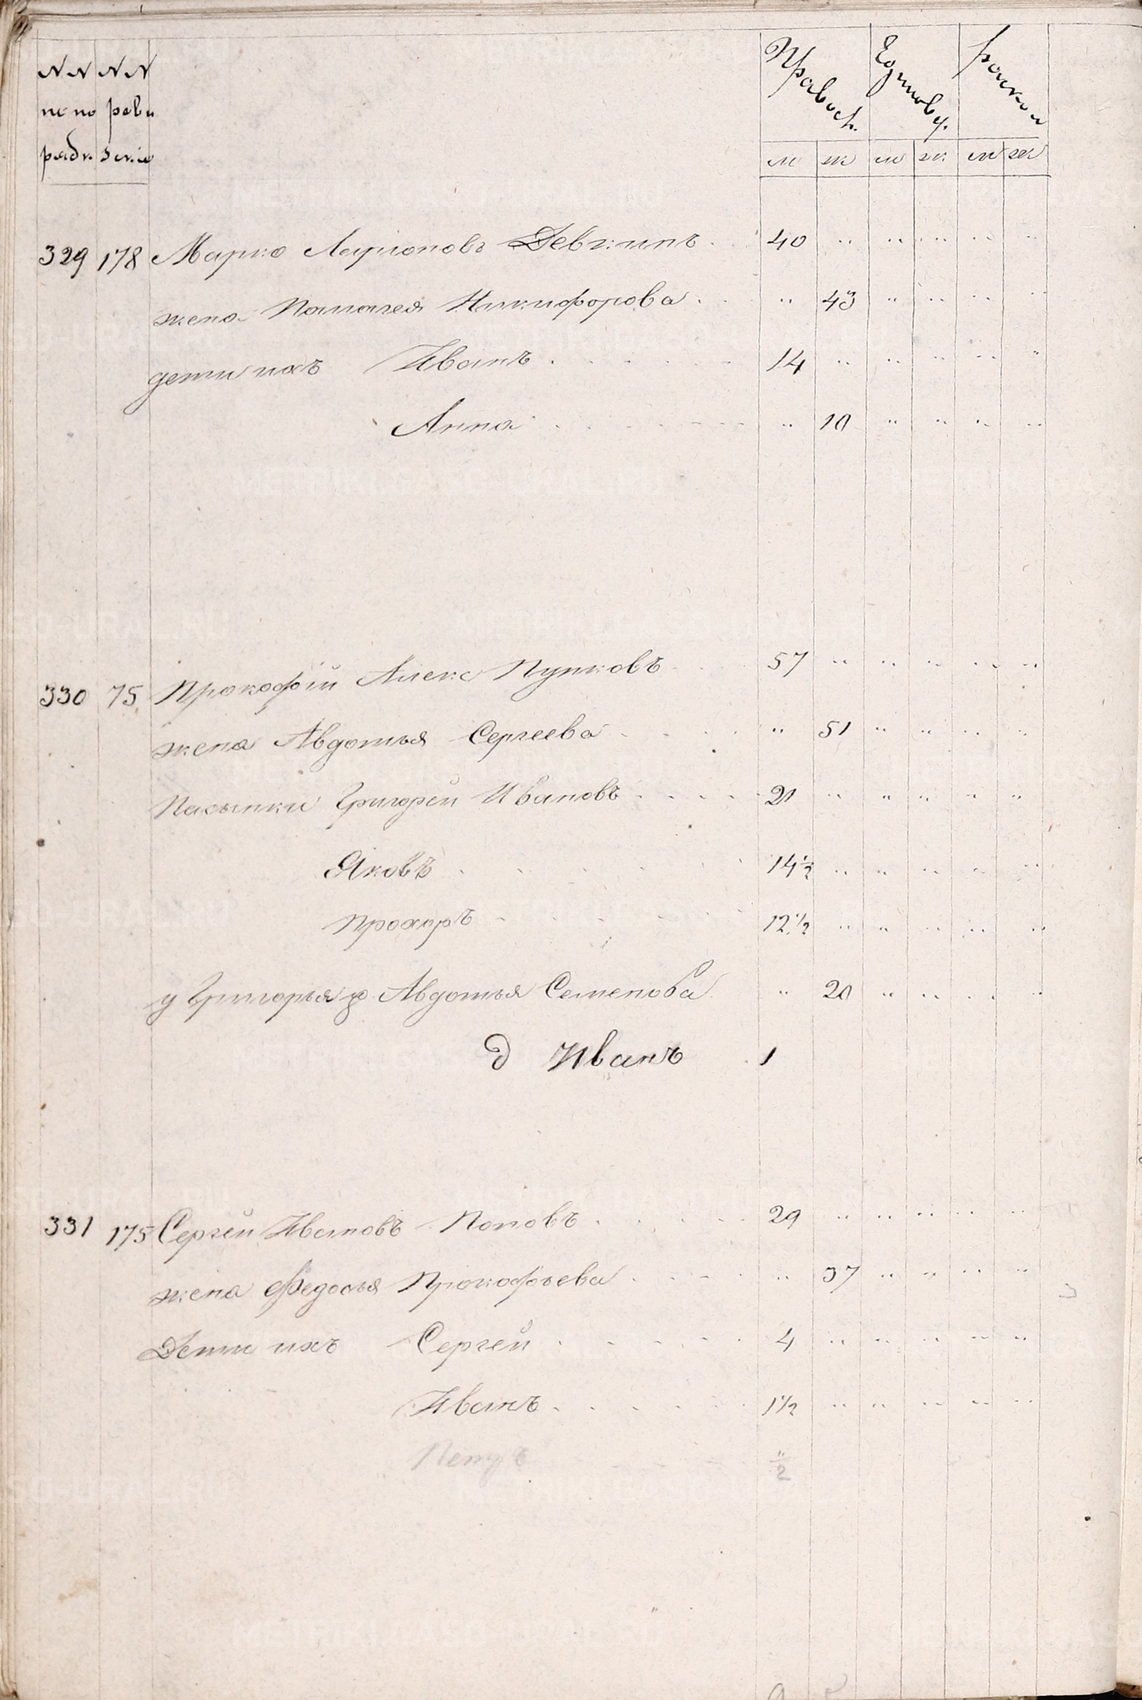 NN NN Правосл. Единовер. раскол
непо реви
рядк. зские м ж м ж м ж
329 178 Марко Ларионовъ Девкинъ 40
жена Палагея Никифорова 43
дети ихъ Иванъ 14
Анна 10
330 75 Прокофiй Алекс Пупковъ 57
жена Авдотья Сергеева 51
Пасынки Григорей Ивановъ 21
Яковъ 14 1/2
Прохоръ 12 1/2
у Григорья ж Авдотья Семенова 20
д Иванъ 1
331 175 Сергей Ивановъ Поповъ 29
жена Федосья Прокофьева 37
Дети ихъ Сергей 4
Иванъ 1 1/2
Петръ 1/2